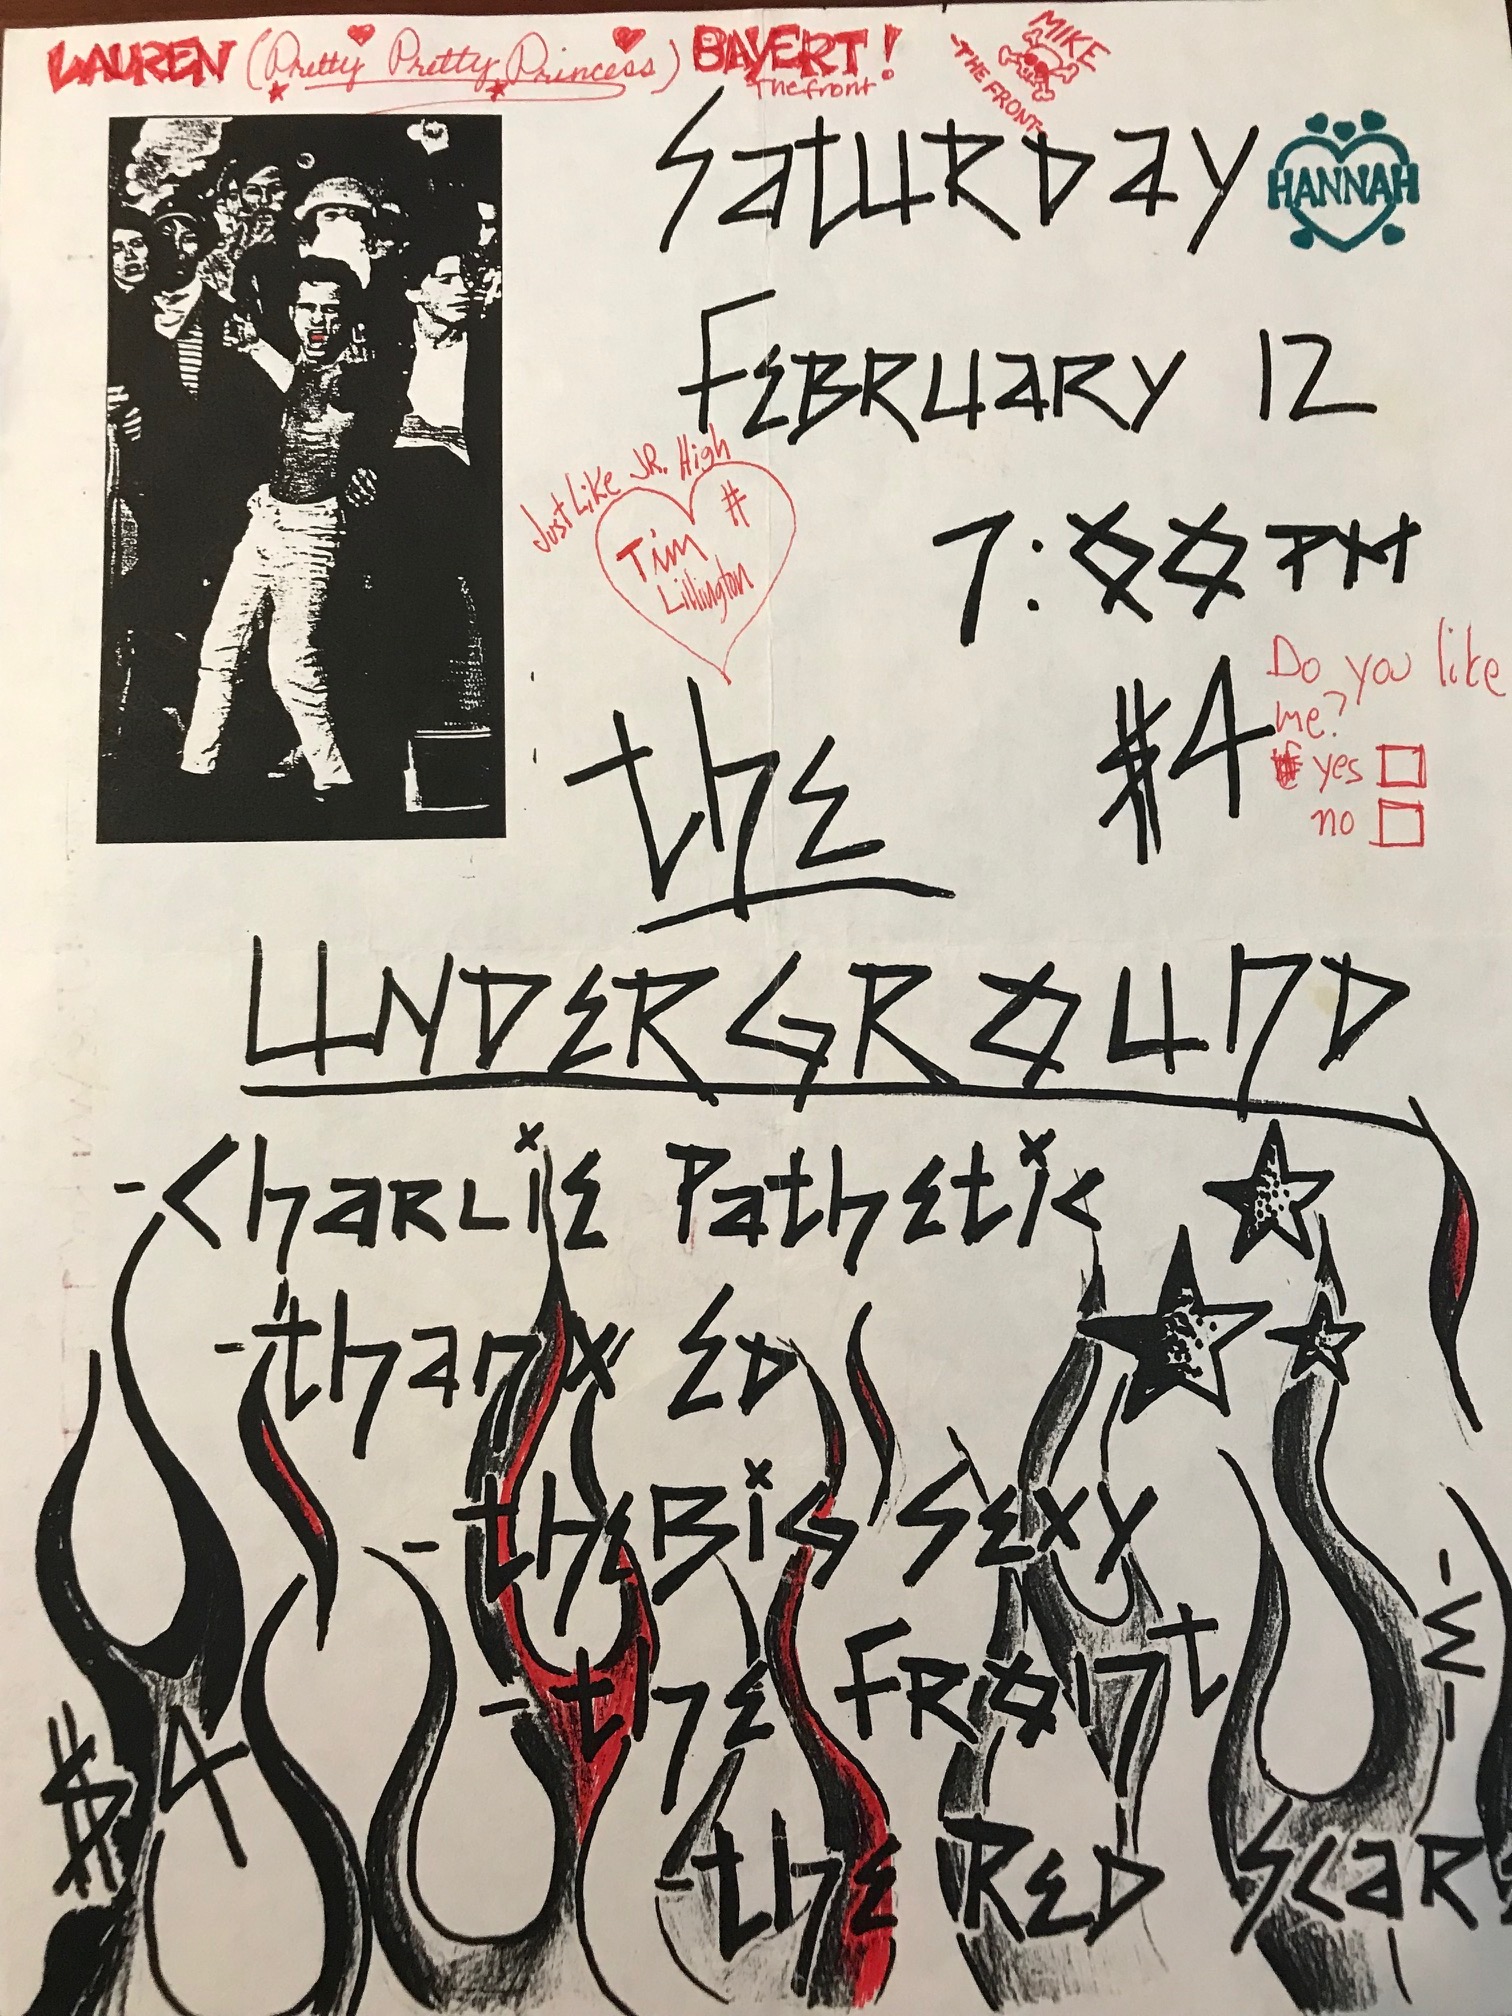 LAUREN (Pretty Pretty Princess) BAVERT!
The front
MIKE
-THE FRONT-
Saturday
HANNAH
February 12
Just Like Jr. High
#
Tim
Lillington
7:00 PM
$4
Do you like
me?
yes
no
the
Underground
-Charlie Pathetic
-thanx Ed
-the Big Sexy
-the Front
-the Red Scare
$4